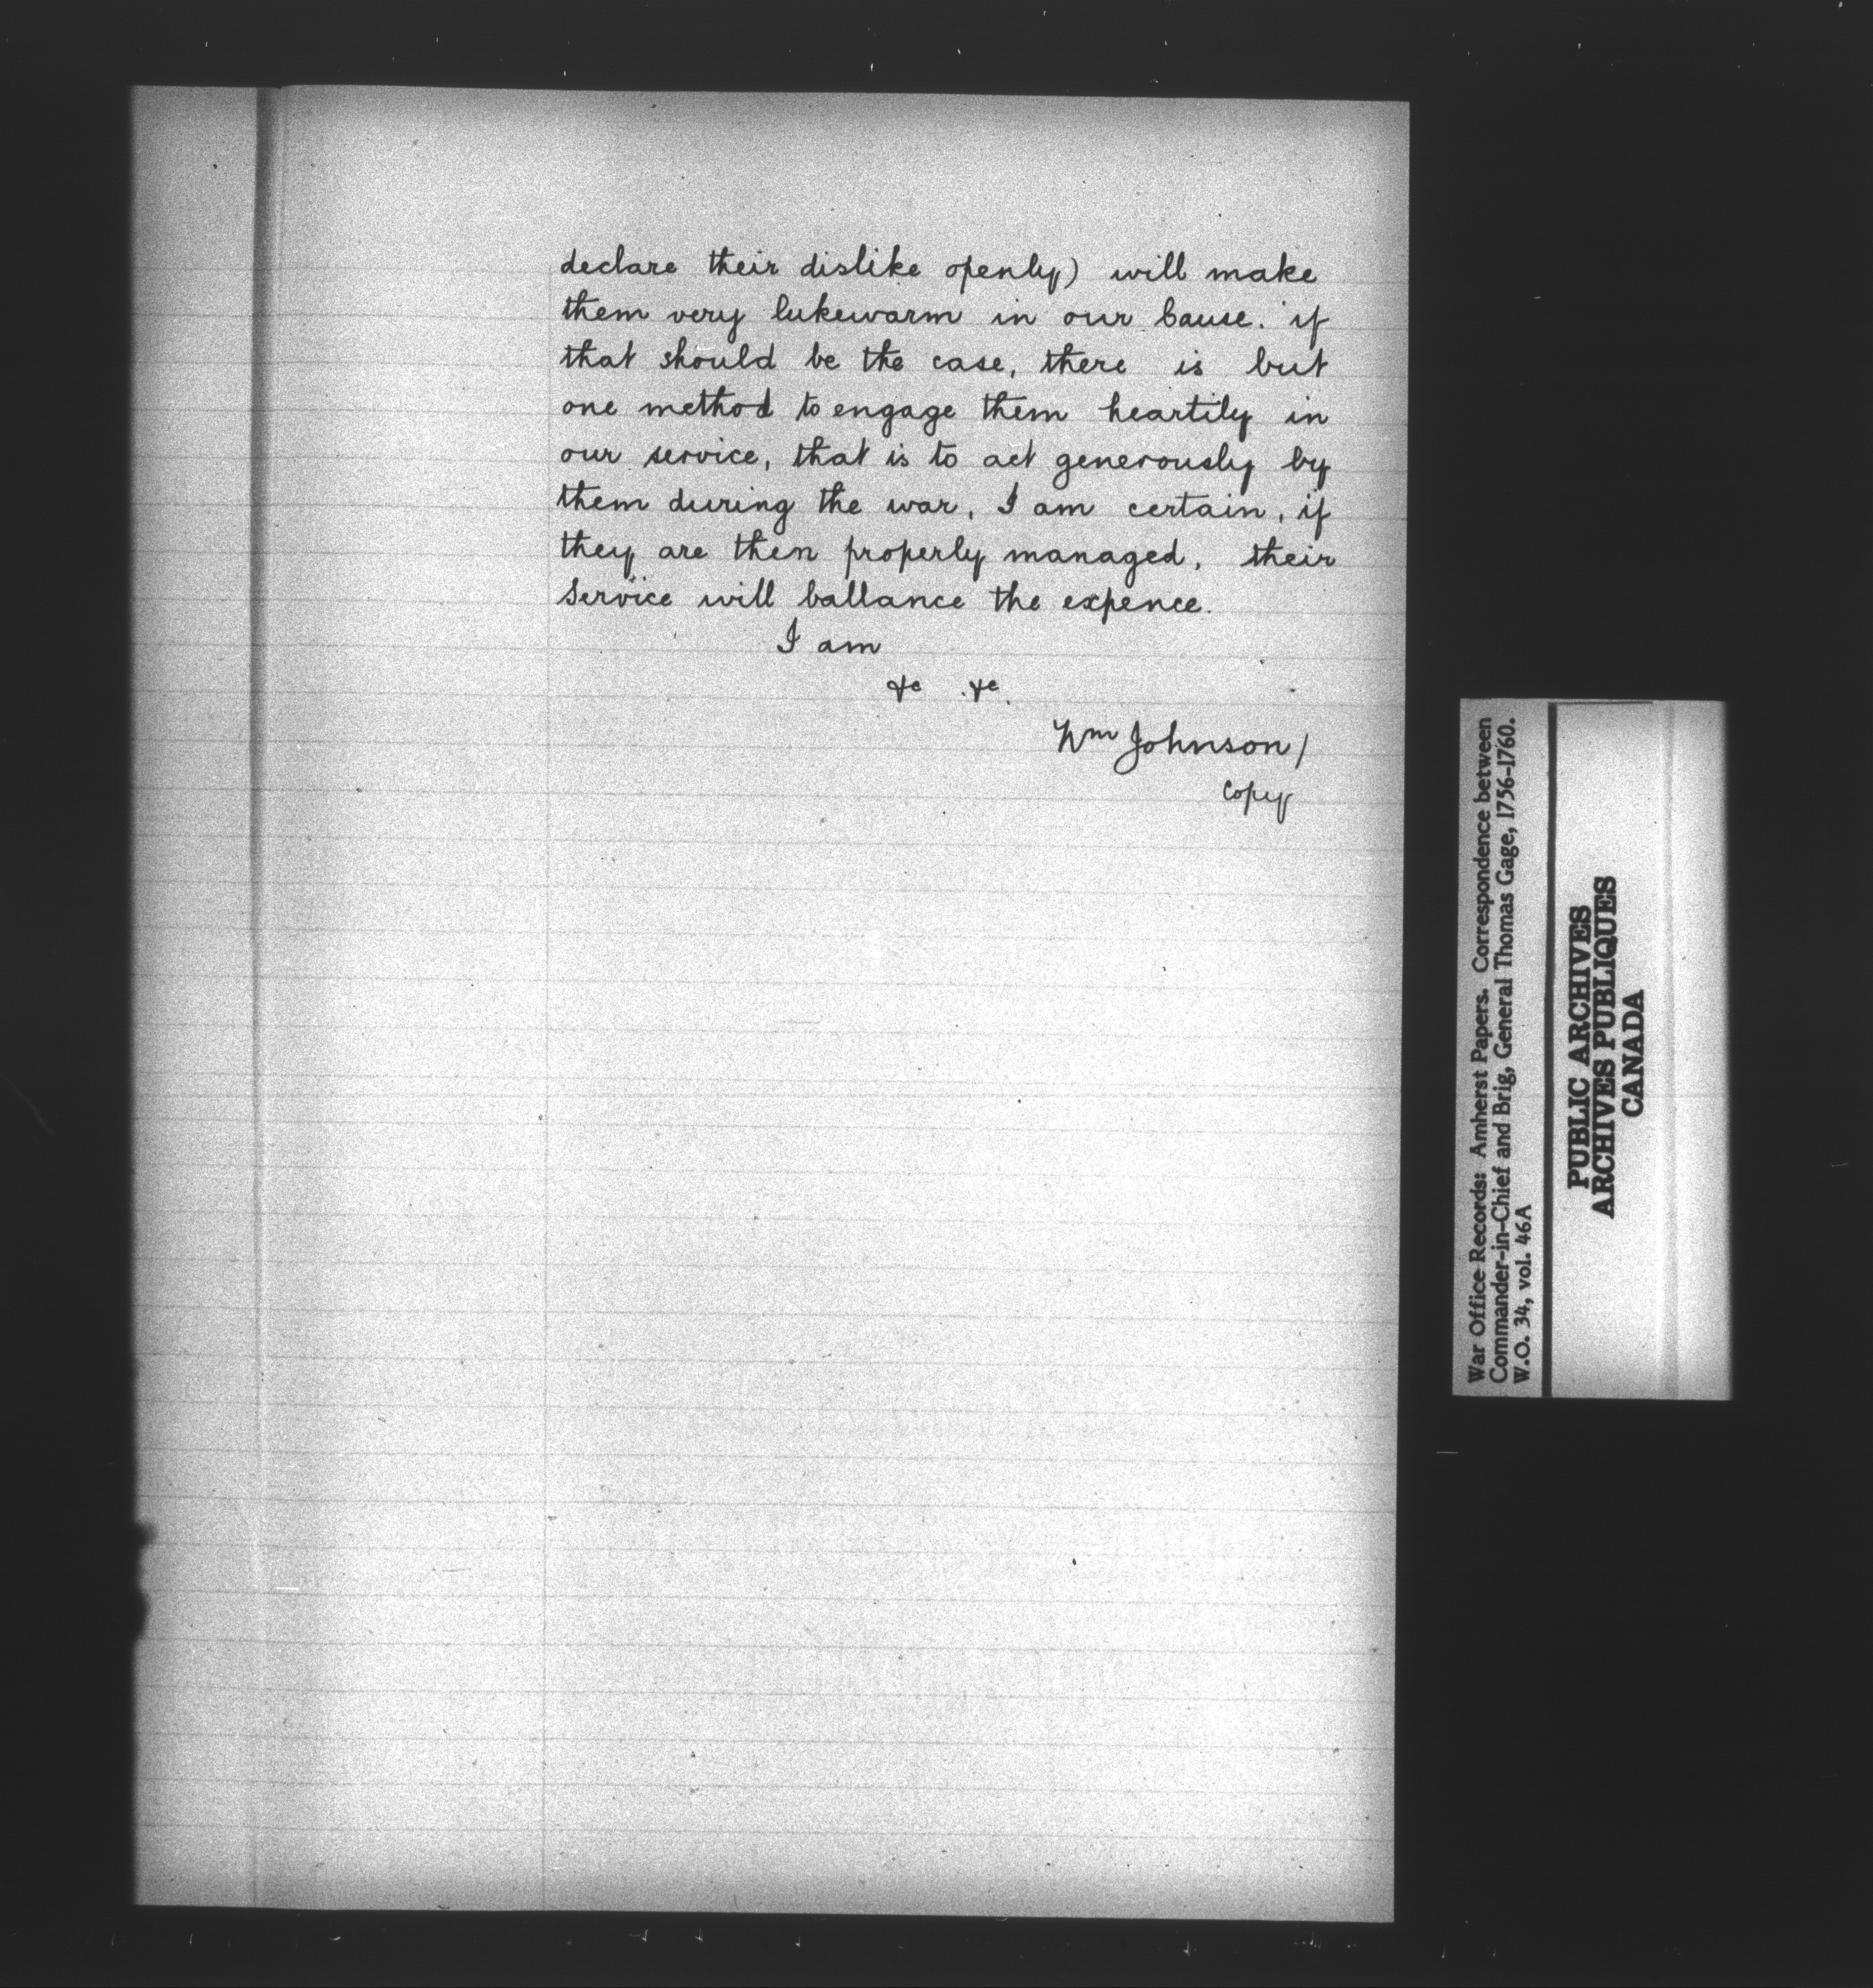 declare their dislike openly) will make
them very lukewarm in our Cause. if
that should be the case, there is but
one method to engage them heartily in
our service, that is to act generously by
them during the war, I am certain, if
they are then properly managed, their
Service will ballance the expence.
I am
&c &c.
Wm Johnson/
Copy
War Office Records: Amherst Papers. Correspondence between
Commander-in-Chief and Brig, General Thomas Gage, 1756-1760.
W.O. 34, vol. 46A
PUBLIC ARCHIVES
ARCHIVES PUBLIQUES
CANADA